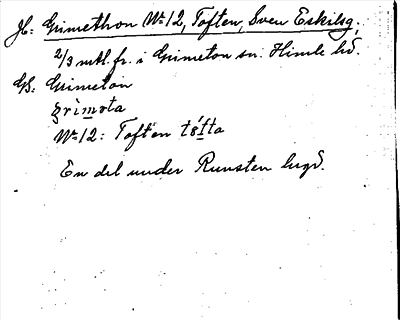 Jb: Grimethon No 12, Toften, Sven Eskilsg.
2/3 mtl. fr. i Grimeton sn. Himle hd.
GS: Grimeton
grìmsta
No 12: Toften
En del under Runsten lagd.